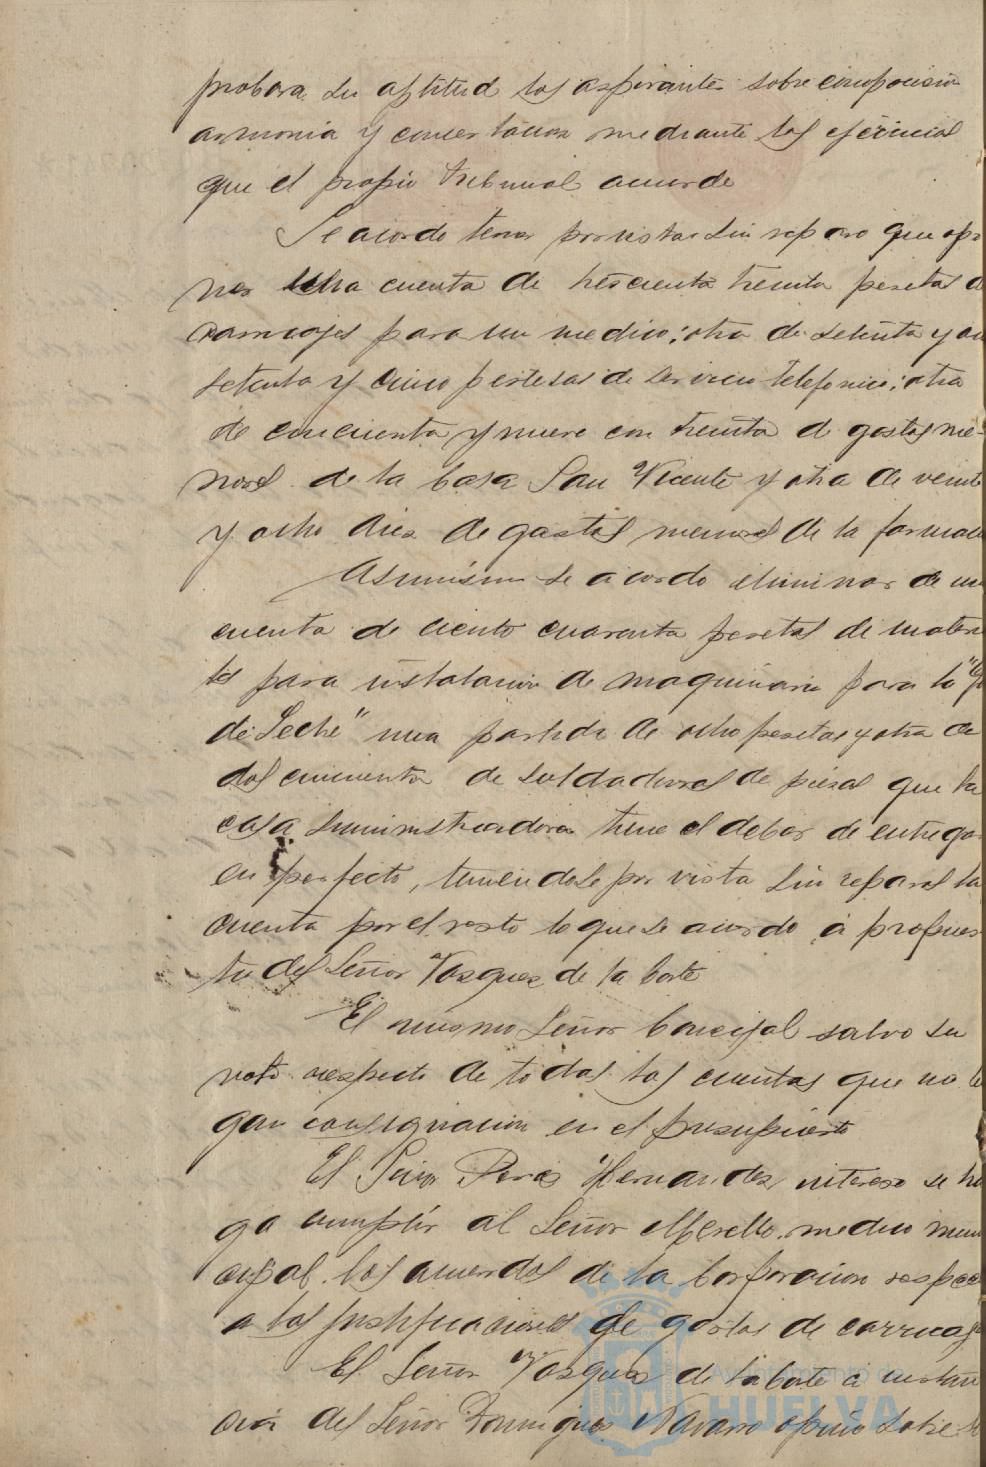 probara su aptitud los aspirantes sobre composicion
armonia y concertacion mediante los ejercicios
que el propio tribunal acuerde
Se acordo tener por vistas sin reparo que opo
ner una cuenta de trescientas treinta pesetas d
carruajes para un medico; otra de setenta y
setenta y cinco pesetas de servicio telefonico; otra
de cincuenta y nueve con treinta d gastos me-
nores de la Casa San Vicente y otra de veinte
y ocho diez de gastos menores de la farmaci
Asimismo se acordo eliminar de un
cuenta de ciento cuarenta pesetas de materia
les para instalacion de maquinaria para la "G
de Leche" una partida de ocho pesetas y otra de
dos cincuenta de soldaduras de piezas que la
casa suministradora tiene el deber de entregar
en perfecto, teniendose por vista sin reparos la
cuenta por el resto lo que se acordo á propues
ta del Señor Vazquez de la Corte
El mismo Señor Concejal salvo su
voto respecto de todas las cuentas que no te
gan consignacion en el presupuesto
El Señor Peres Hernandez intereso se ha
ga cumplir al Señor Merello medico muni
cipal los acuerdos de la Corporacion respec
a las justificaciones de gastos de carruaje
El Señor Vazquez de la Corte á instan
cia del Señor Dominguez Navarro opinó sobre
Ayuntamiento de
HUELVA